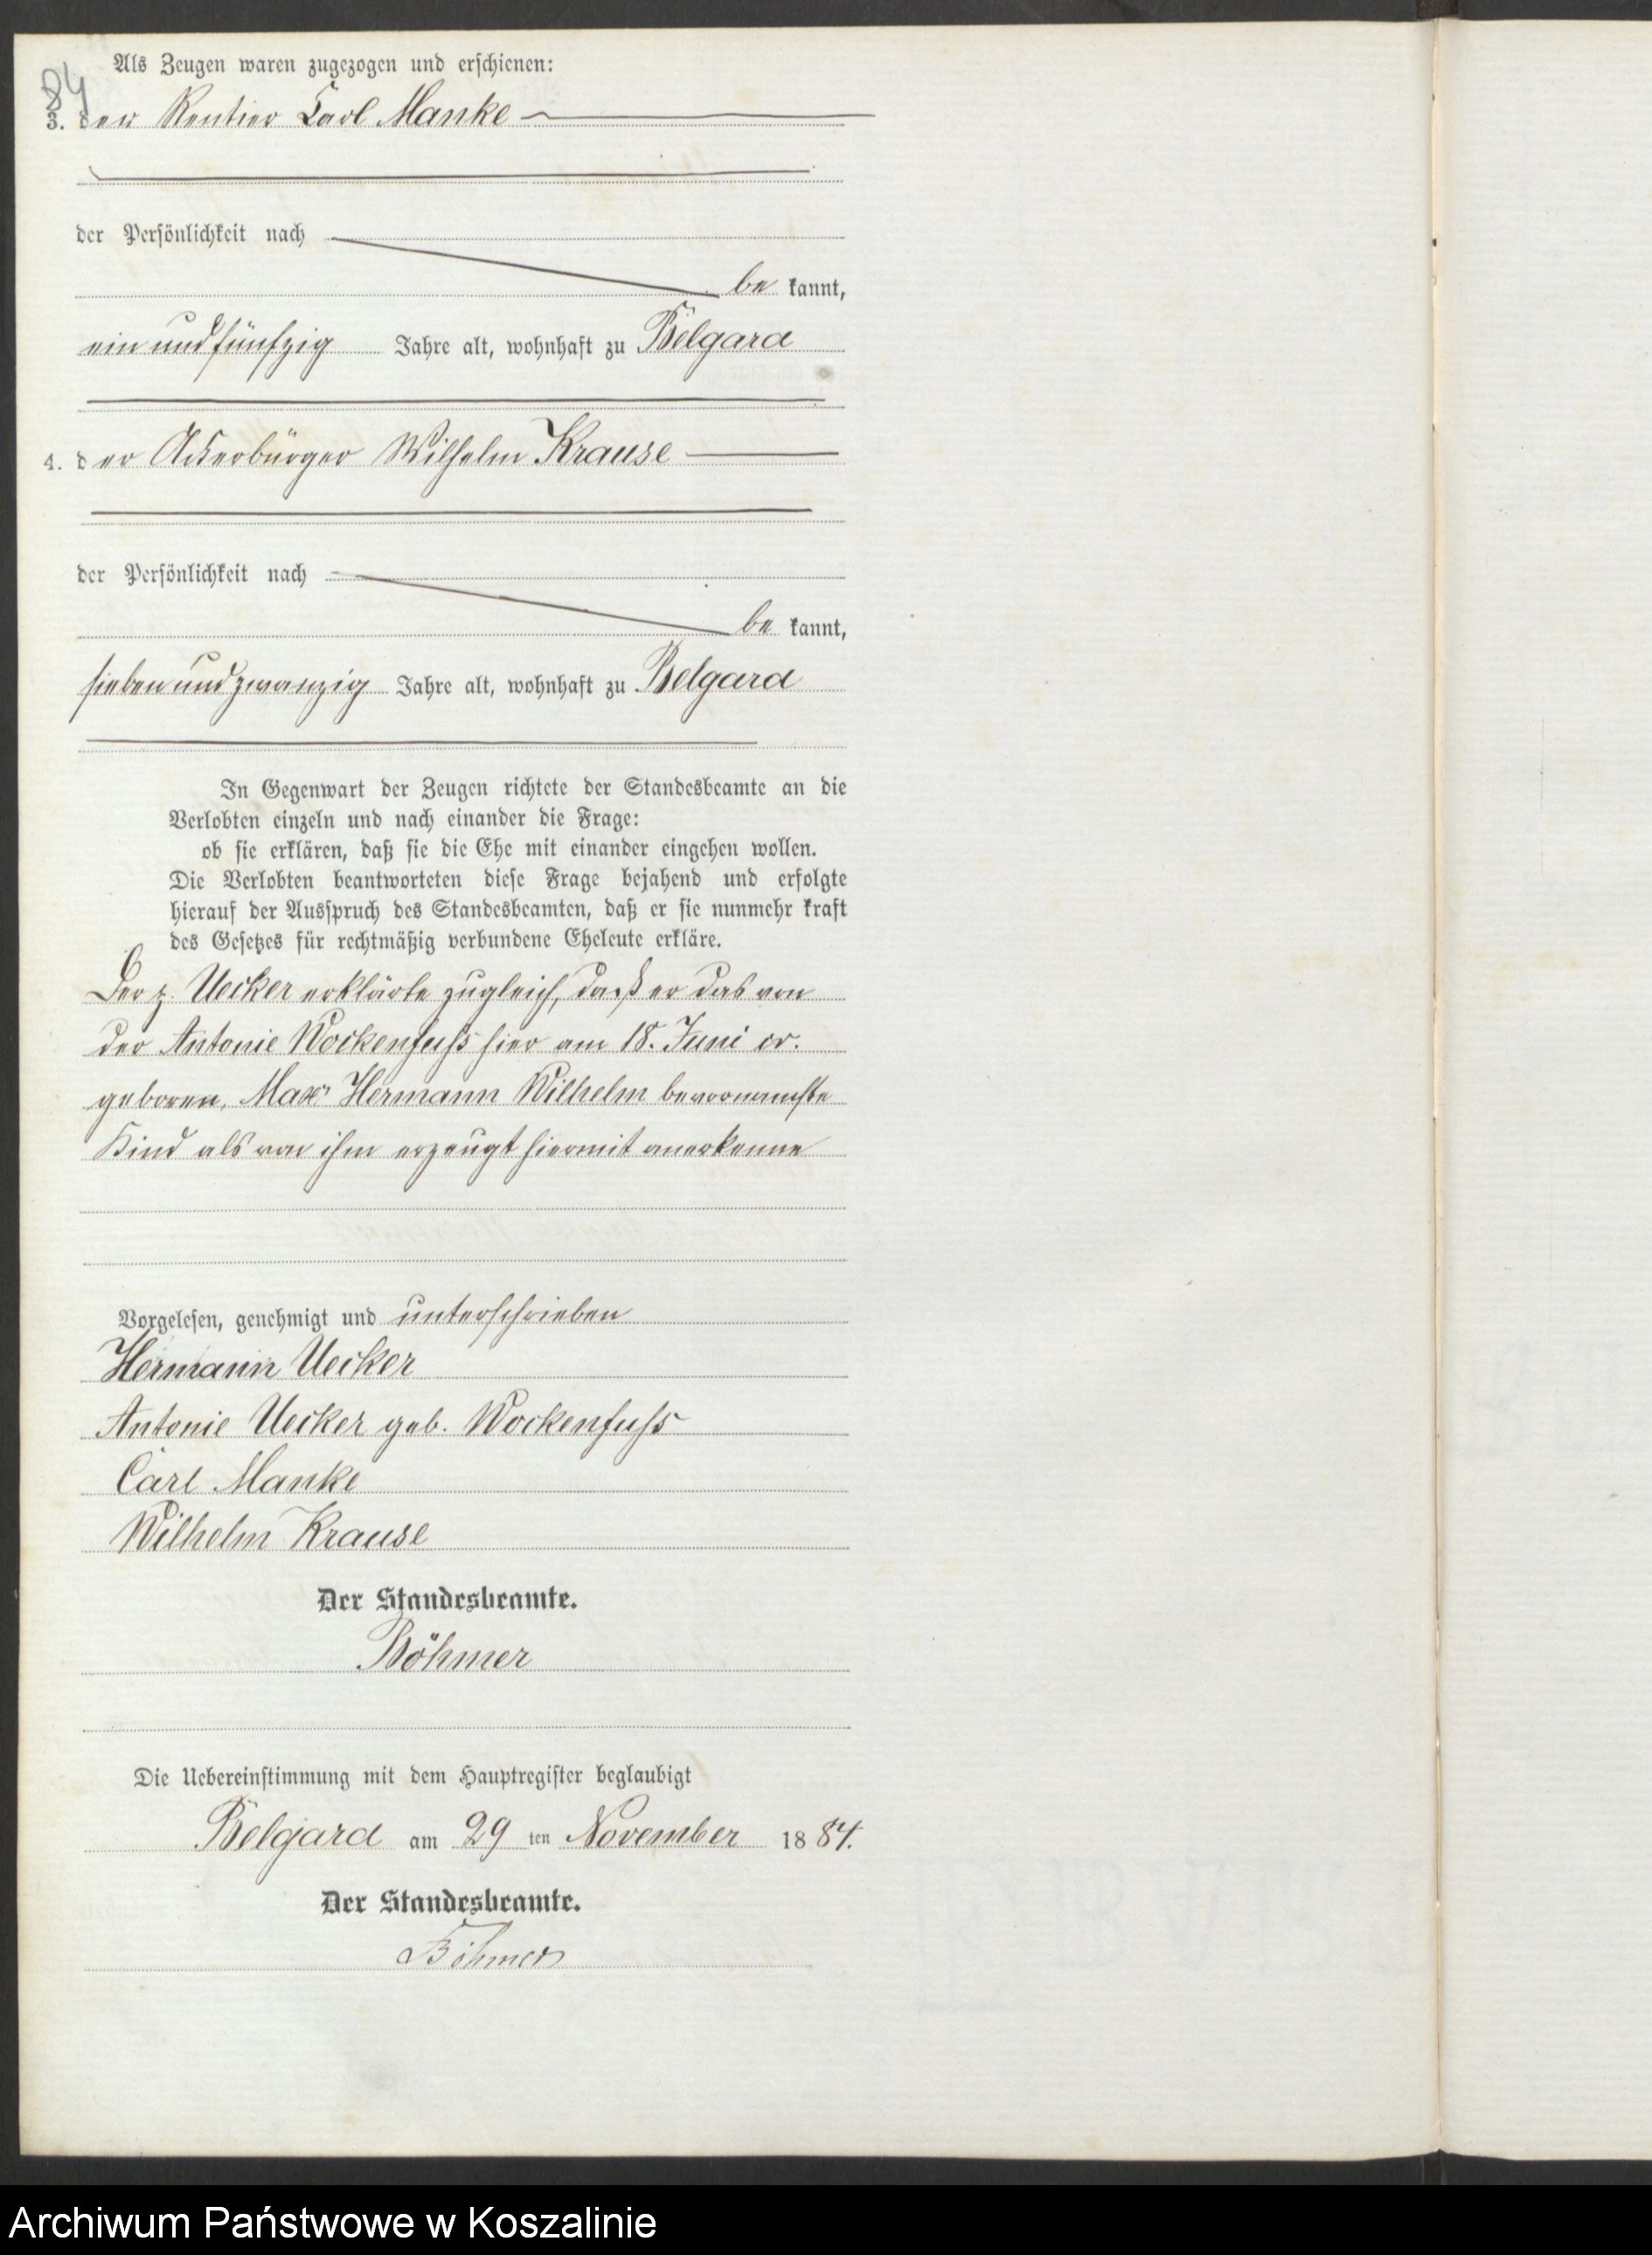 84
Als Zeugen waren zugezogen und erschienen:
3. der Rentier Carl Manke
der Persönlichkeit nach
be kannt,
ein und fünfzig Jahre alt, wohnhaft zu Belgard
4. der Ackerbürger Wilhelm Krause
der Persönlichkeit nach
be kannt,
sieben und zwanzig Jahre alt, wohnhaft zu Belgard
In Gegenwart der Zeugen richtete der Standesbeamte an die
Verlobten einzeln und nach einander die Frage:
ob sie erklären, daß sie die Ehe mit einander eingehen wollen.
Die Verlobten beantworteten diese Frage bejahend und erfolgte
hierauf der Ausspruch des Standesbeamten, daß er sie nunmehr kraft
des Gesetzes für rechtmäßig verbundene Eheleute erkläre.
Der p. Uecker erklärte zugleich, daß er das von
der Antonie Wockenfuss hier am 18. Juni cr.
geboren, Max Hermann Wilhelm bevornamste
Kind als von ihm erzeugt hiermit anerkenne
Vorgelesen, genehmigt und unterschrieben
Hermann Uecker
Antonie Uecker geb. Wockenfuss
Carl Manke
Wilhelm Krause
Der Standesbeamte.
Böhmer
Die Uebereinstimmung mit dem Hauptregister beglaubigt
Belgard am 29 ten November 1884.
Der Standesbeamte.
Böhmer
Archiwum Państwowe w Koszalinie